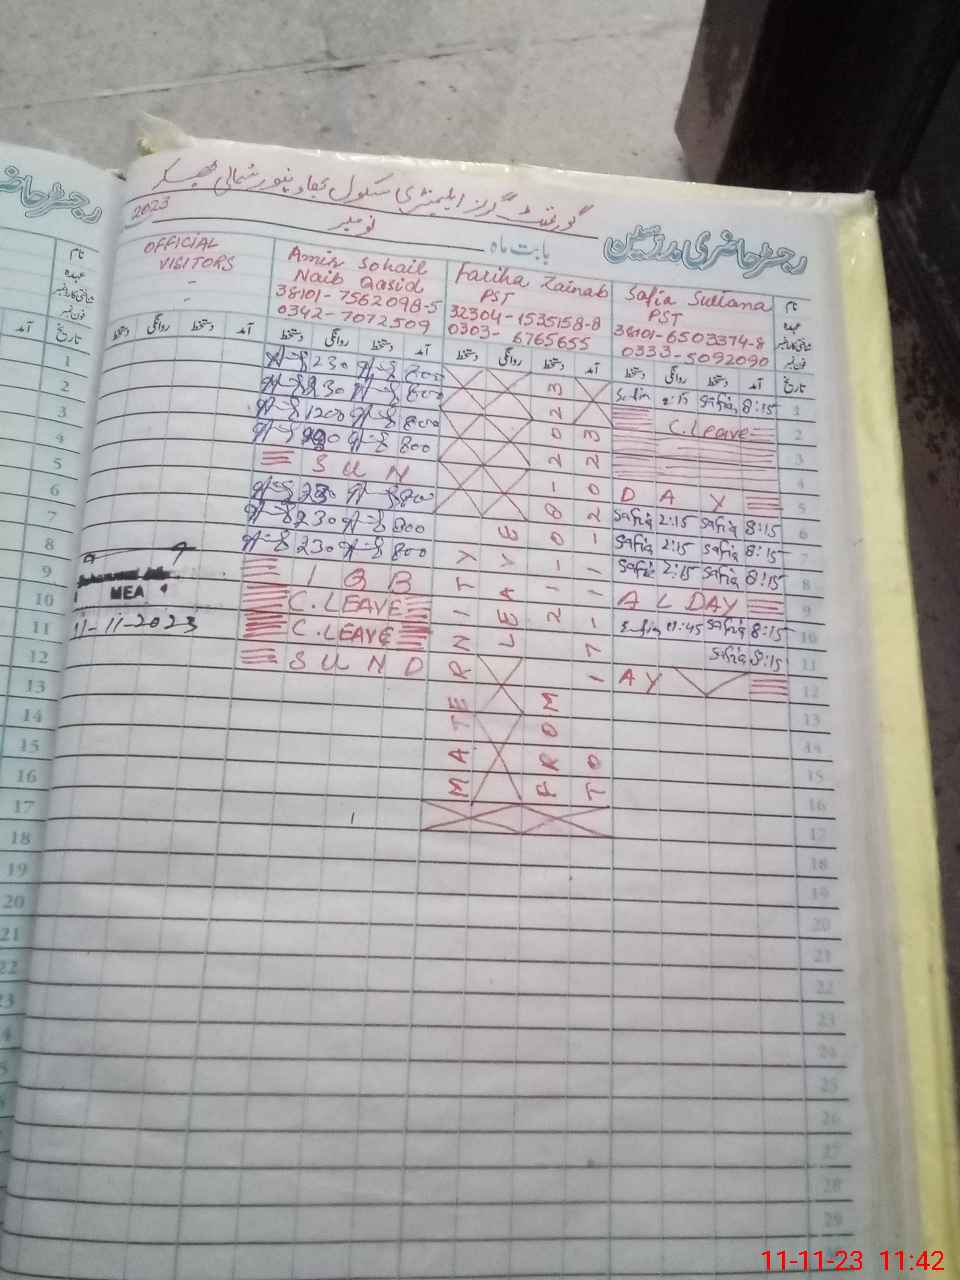 گورنمنٹ گرلز ایلیمنٹری سکول شمالی بھکر
2023
نومبر
بابت ماہ
رجسٹر حاضری مدرسین
OFFICIAL VISITORS
-
-
Amir Sohail
Naib Qasid
38101-7562098-5
0342-7072509
Fariha Zainab
PST
32304-1535158-8
0303-6765655
Safia Sultana
PST
38101-6503374-8
0333-5092090
نام
عہدہ
تاریخ
آمد دستخط روانگی دستخط
1 Safia 8:15 Safia 2:15 800 230
2 C.Leave 800 230
3 800 1200
4 800
5 DAY SUN
6 Safia 8:15 Safia 2:15 800 230
7 Safia 8:15 Safia 2:15 800 230
8 Safia 8:15 Safia 2:15 800 230
9 AL DAY IQB
10 Safia 8:15 11:45 C.LEAVE
11 Safia 8:15 C.LEAVE
12 AY SUND
MATERNITY
LEAVE
FROM 21-10-2023
TO 17-11-2023
MEA
11-11-2023
13
14
15
16
17
18
19
20
21
22
23
24
25
26
27
28
29
11-11-23 11:42